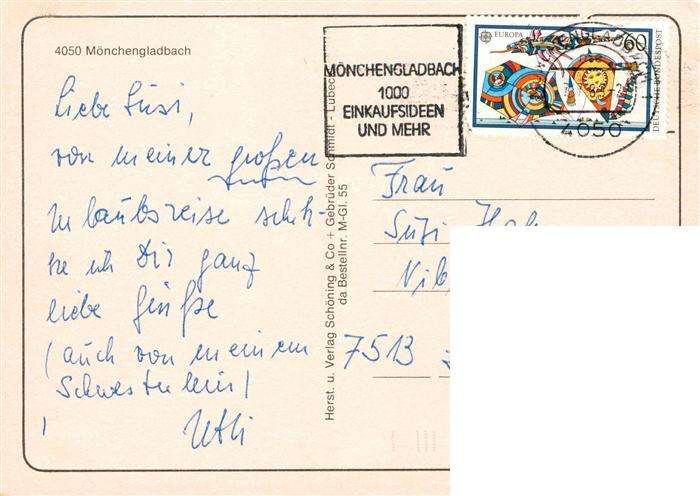 4050 Mönchengladbach
MÖNCHENGLADBACH
1000
EINKAUFSIDEEN
UND MEHR
EUROPA
60
DEUTSCHE BUNDESPOST
4050
Liebe Susi,
von meiner großen
Urlaubsreise schik-
ke ich Dir ganz
liebe Grüße
(auch von meinem
Schwesterlein)
!
Herst. u. Verlag Schöning & Co + Gebrüder Schmidt - Lübeck
da Bestellnr. M-Gl. 55
Frau
Susi
7513